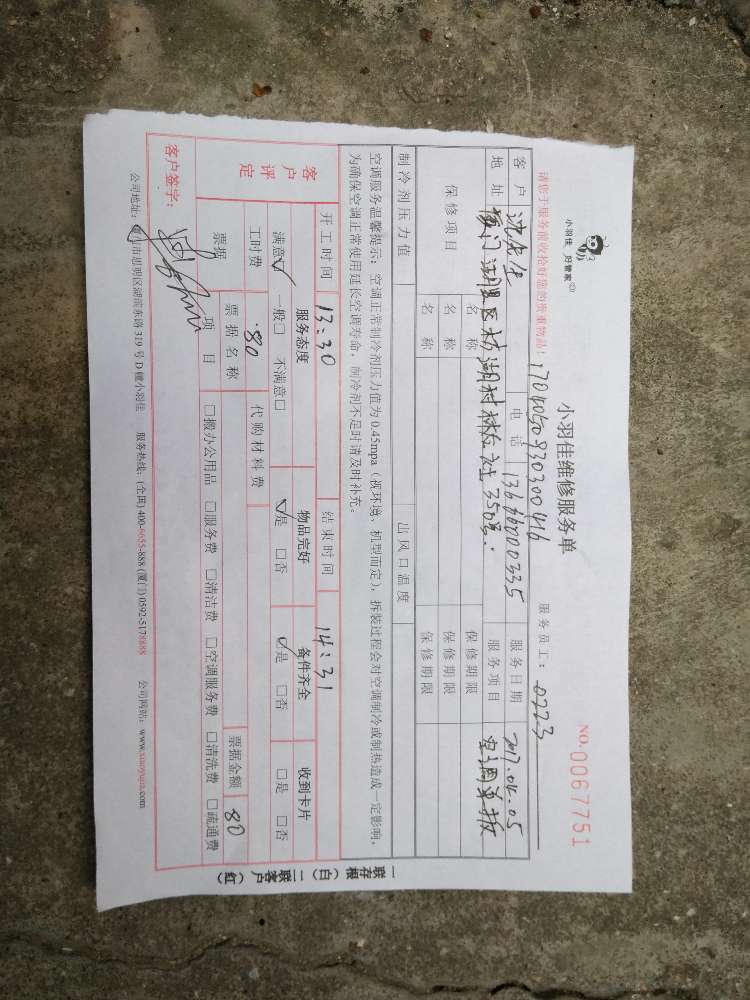 小羽佳 好管家
小羽佳维修服务单
NO. 0067751
请您于服务前收拾好您的贵重物品!
服务员工: 0223
客户 沈先生 电话 服务日期 2017.04.05
地址 服务项目
保修项目 名称 保修期限
名称 保修期限
名称 保修期限
制冷剂压力值 出风口温度
空调服务温馨提示: 空调正常制冷剂压力值为 0.45mpa (视环境、机型而定), 拆装过程会对空调制冷或制热造成一定影响,
为确保空调正常使用延长空调寿命, 制冷剂不足时请及时补充。
开工时间 13:30 结束时间 14:31
客户评定 服务态度 物品完好 备件齐全 收到卡片
满意☑ 一般□ 不满意□ ☑是 □否 ☑是 □否 □是 □否
工时费 80 代购材料费
票据 票据名称 票据金额 80
项目 □搬办公用品 □服务费 □清洁费 □空调服务费 □清洗费 □疏通费
客户签字:
公司地址: 厦门市思明区湖滨东路 319 号 D 幢小羽佳 服务热线: (全国) 400-6655-888 (厦门) 0592-5178888 公司网站: www.xiaoyujia.com
一联存根 (白) 二联客户 (红)